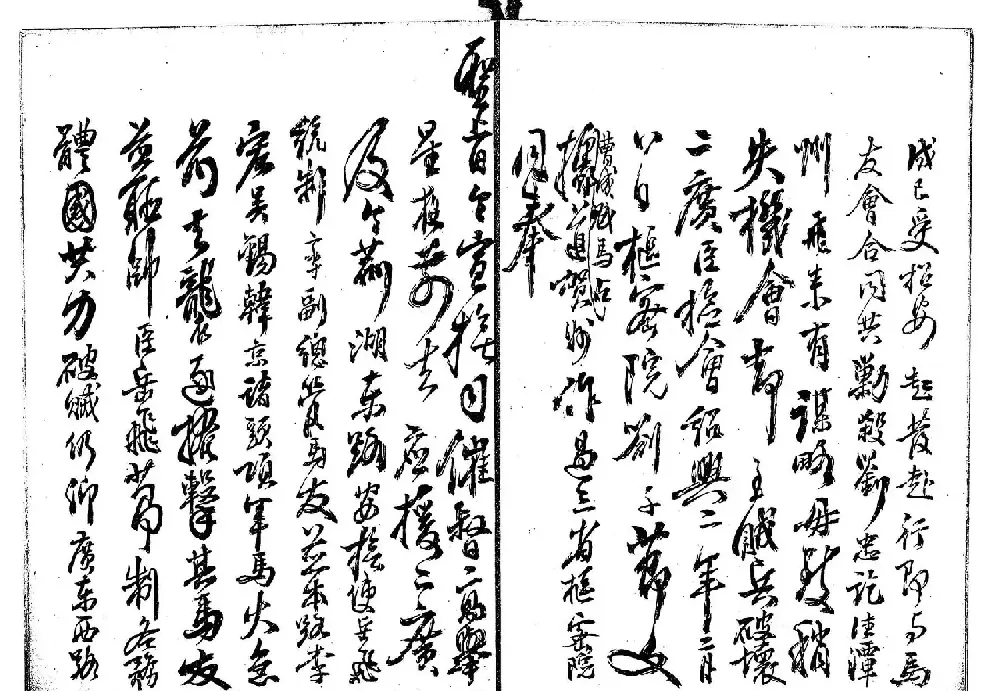 成已受招安起發赴行即與馬
友會合同共勦殺劉忠訖往潭
州飛素有謀略毋致稍
失機會却主賊兵破壞
二廣臣據會紹興二年二月
八日樞密院劄子節文
曹成賊馬占
據道賀州作過三省樞密院
同奉
聖旨令宣撫司催督二萬舉
星夜前去應援二廣
及令荊湖東路安撫使岳飛
統制李副總管馬友并本路李
宏吳錫韓京諸頭項軍馬火急
前去龍虎邀擊其馬友
并聽帥臣岳飛節制各務
體國共力破賊仍仰廣東西路